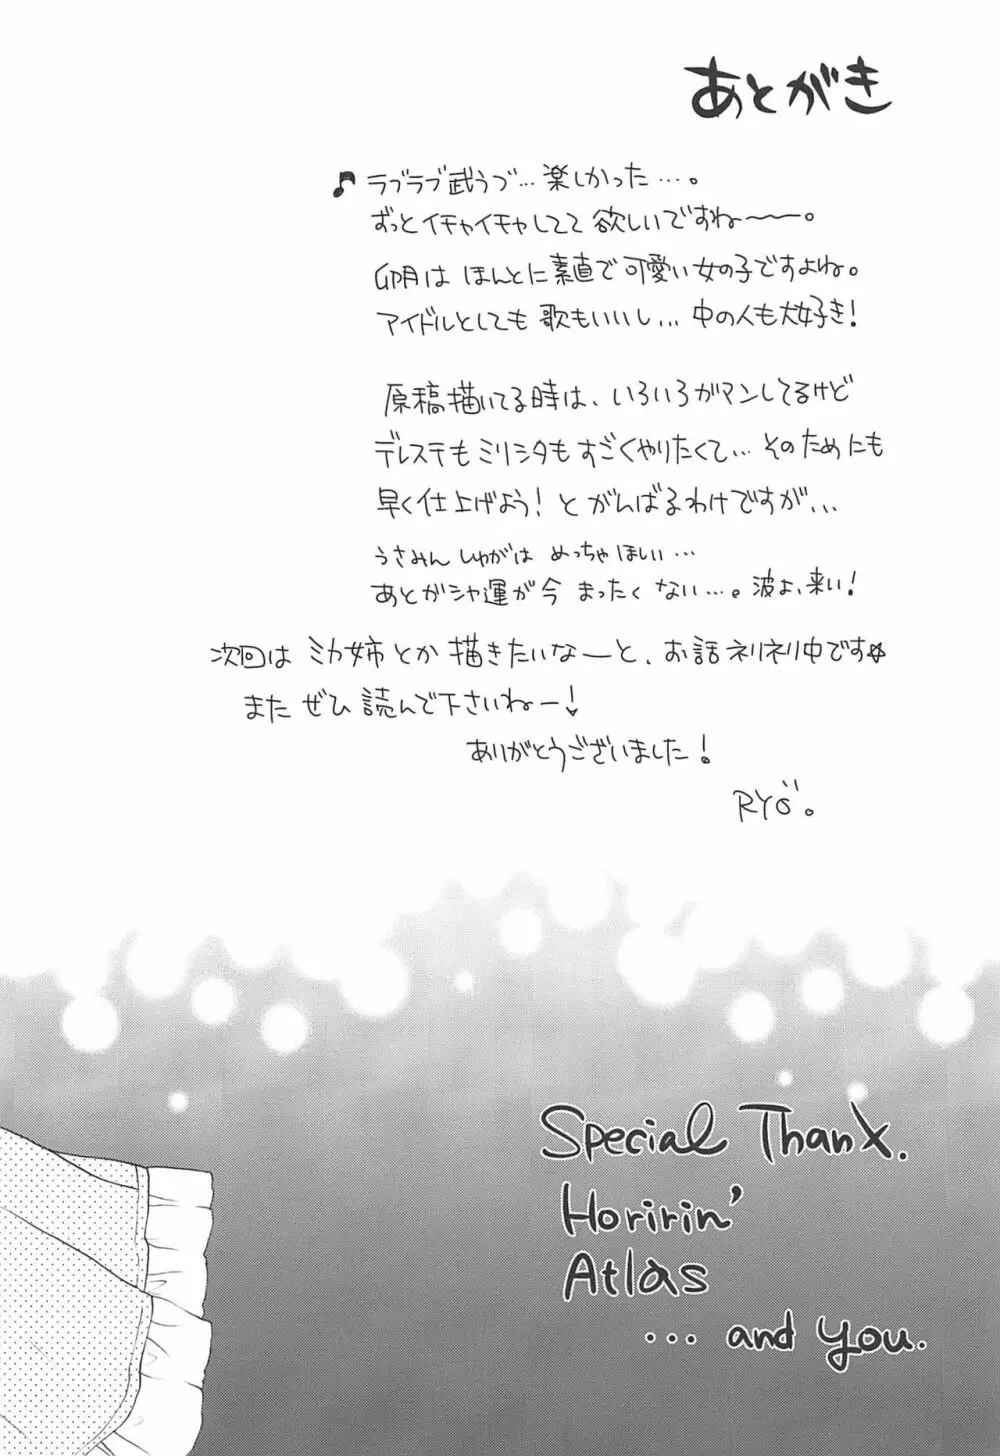 あとがき
♪ラブラブ武うづ…楽しかった…。
ずっとイチャイチャしてて欲しいですね〜〜。
卯月は ほんとに素直で可愛い女の子ですよね。
アイドルとしても 歌もいいし… 中の人も大好き!
原稿描いてる時は、いろいろガマンしてるけど
デレステもミリシタもすごくやりたくて… そのためにも
早く仕上げよう! と がんばるわけですが…
うさみん しゅがは めっちゃほしい…
あとガシャ運が今 まったく ない…。波よ、来い!
次回は ミカ姉とか描きたいなーと、お話ネリネリ中です☆
また ぜひ 読んで下さいねー!
ありがとうございました!
RYÖ。
Special Thanx.
Horirin'
Atlas
... and you.